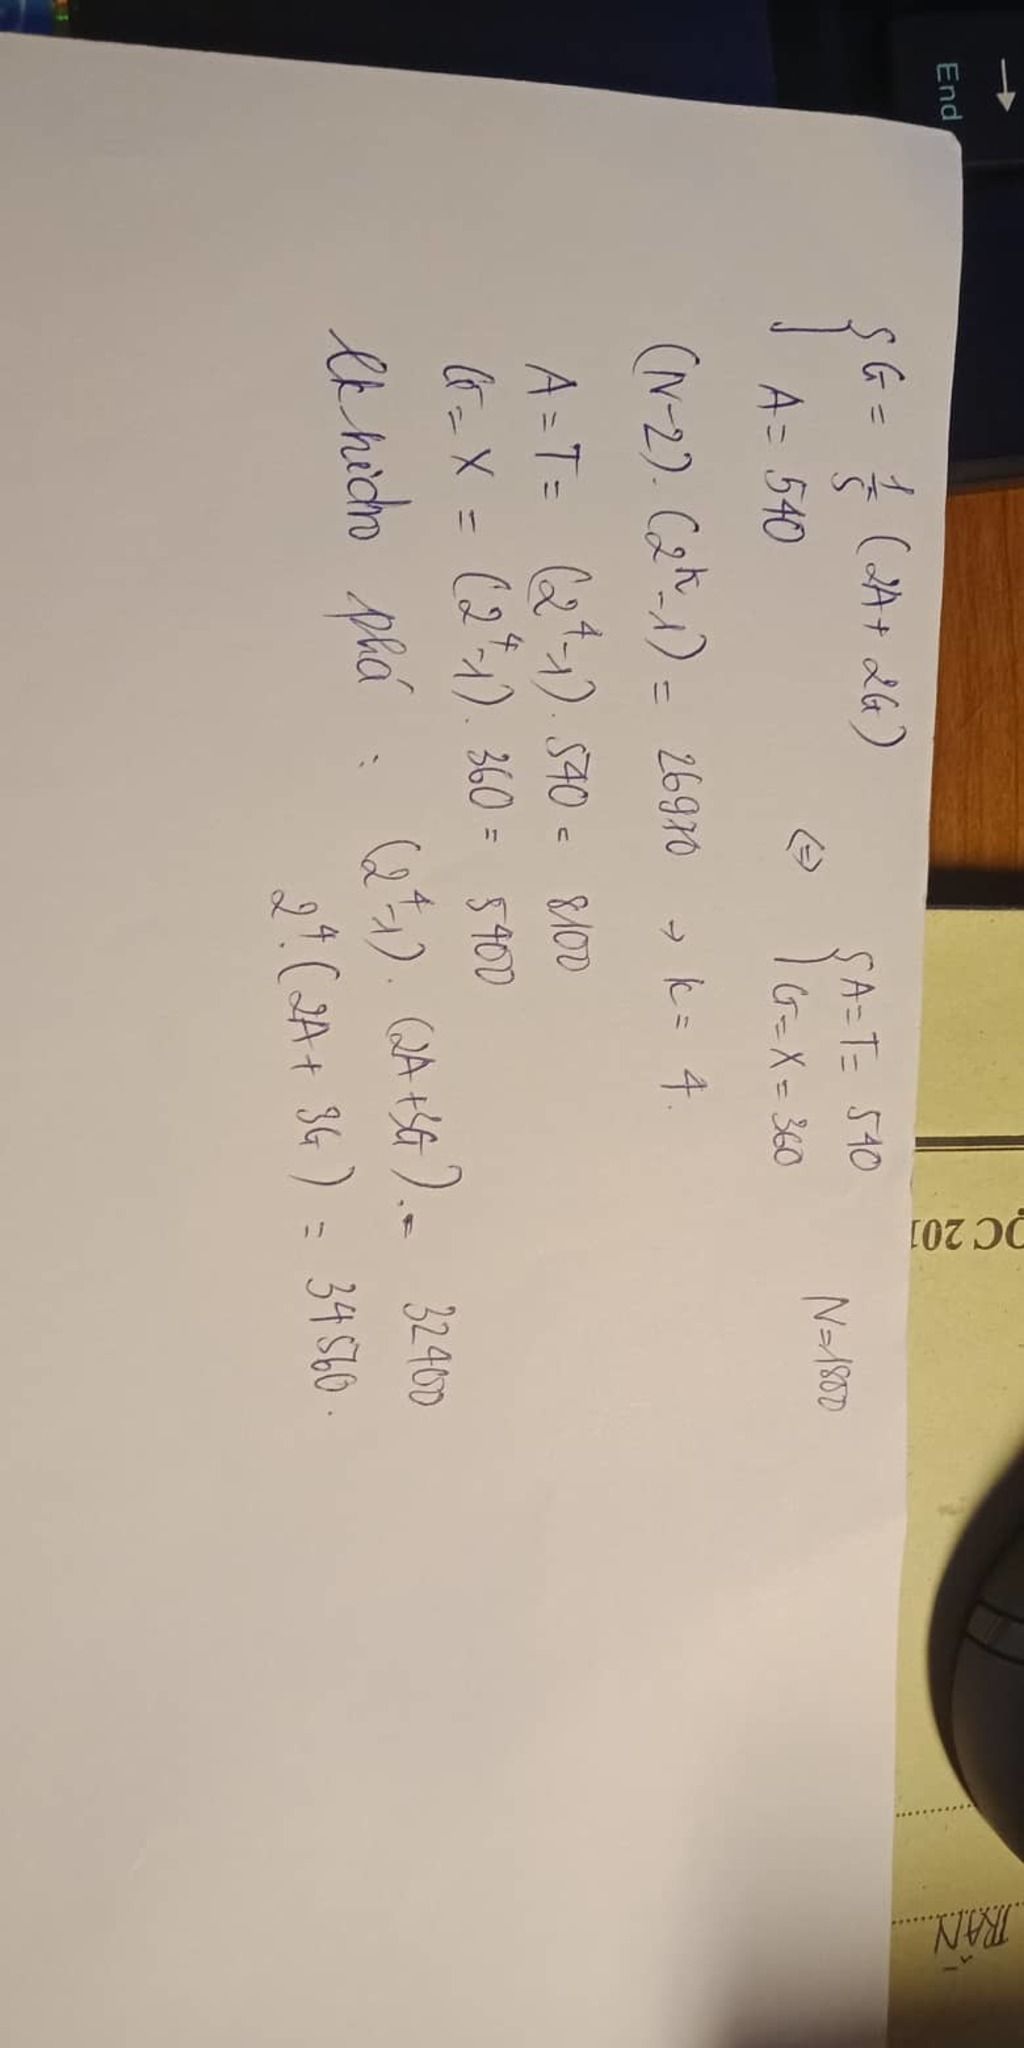 {G = 1/5 (2A + 2G)
A = 540
⇔
{A = T = 540
G = X = 360
N = 1800
(N-2).(2^k-1) = 26970 → k = 4.
A = T = (2^4-1).540 = 8100
G = X = (2^4-1).360 = 5400
lk hiđro phá : (2^4-1).(2A+3G).= 32400
2^4.(2A + 3G) = 34560.
→
End
QC 201
TRẦN